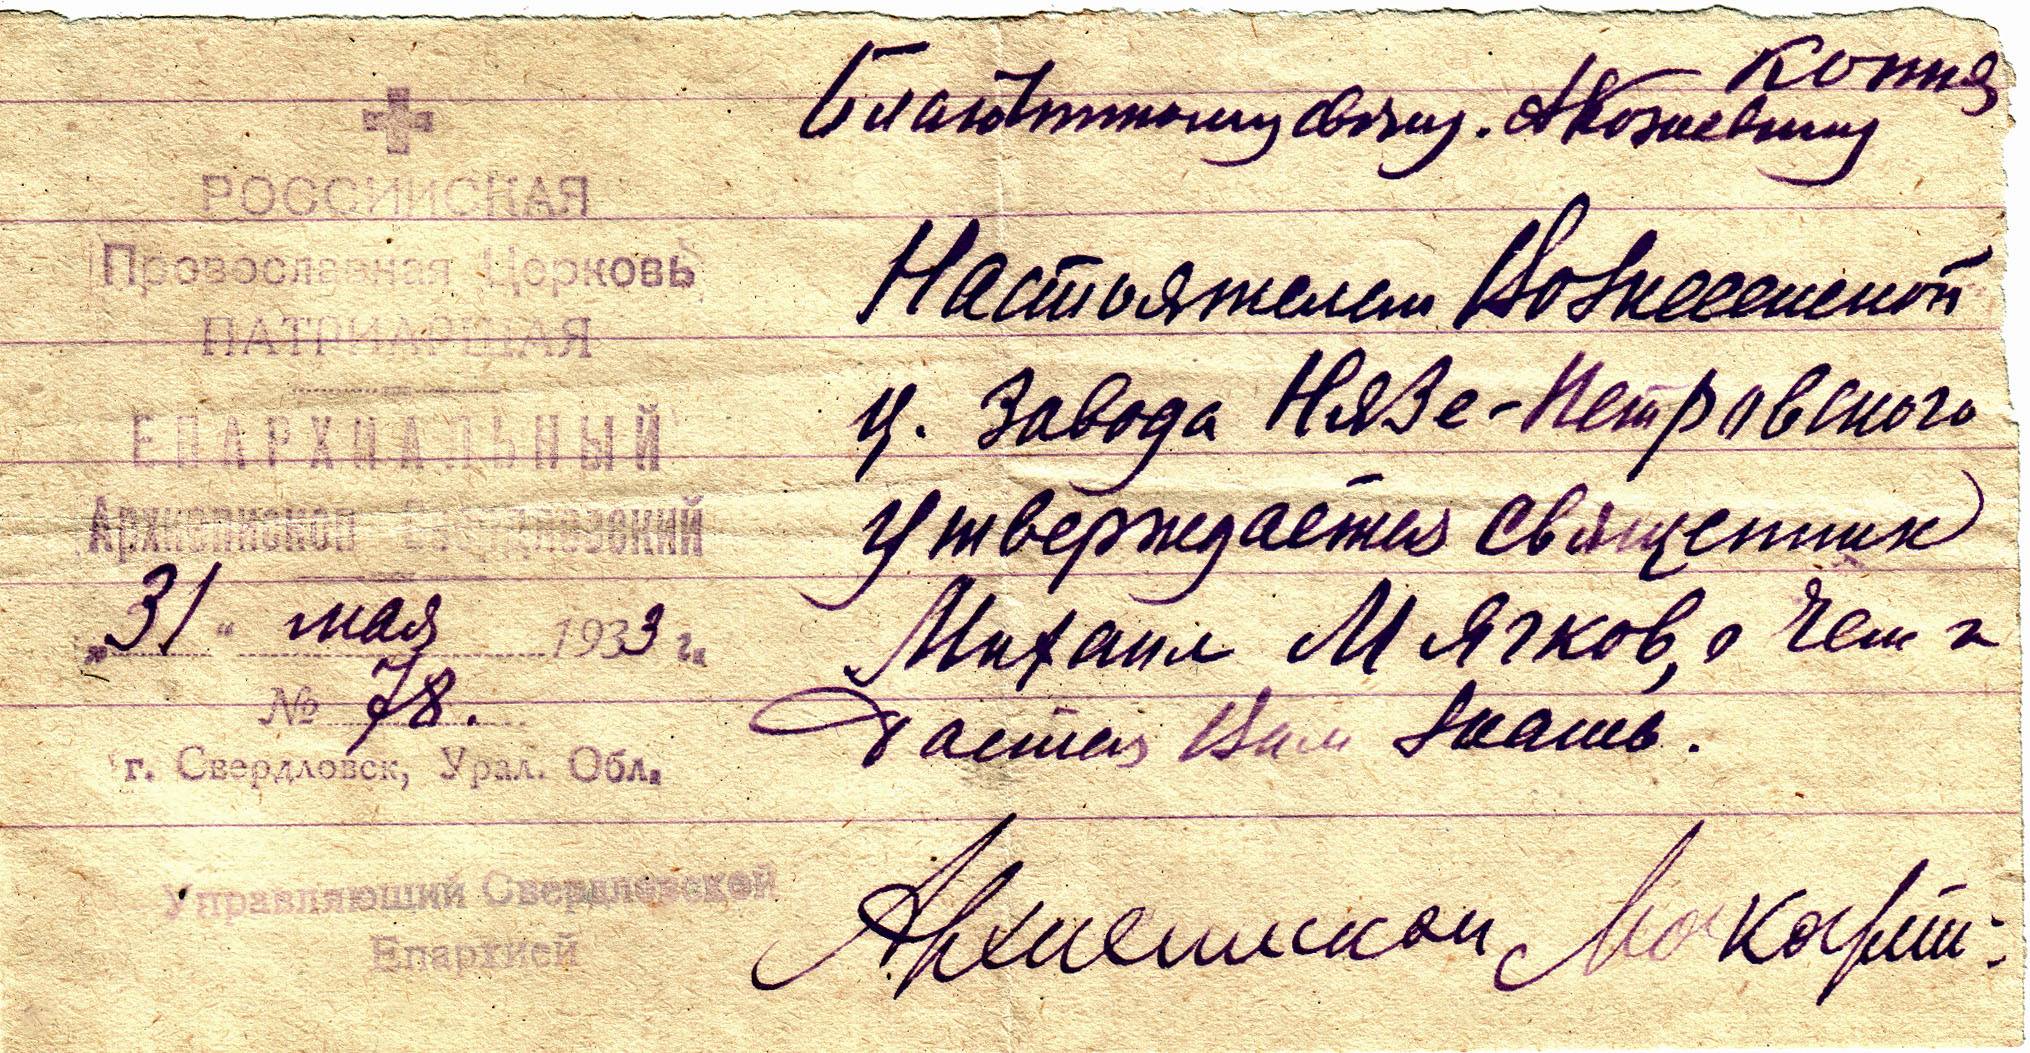 РОССИЙСКАЯ
Провославная Церковь
ПАТРИАРШАЯ
ЕПАРХИАЛЬНЫЙ
Архиепископ Свердловский
„31“ мая 1933 г.
№ 78.
г. Свердловск, Урал. Обл.
Управляющий Свердловской
Епархией
Копия
Благочинному свящ.
Настоятелем Вознесенской
ц. завода Нязе-Петровского
утверждается священник
Михаил Мягков, о чем и
дается Вам знать.
Архиепископ Макарий